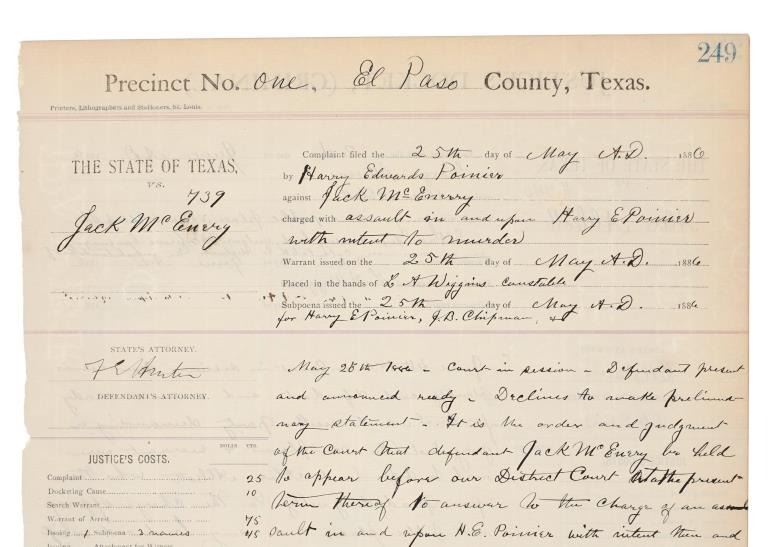 249
Precinct No. one, El Paso County, Texas.
Printers, Lithographers and Stationers, St. Louis.
THE STATE OF TEXAS,
VS. 739
Jack McEnery
Complaint filed the 25th day of May A.D. 1886
by Harry Edwards Poinier
against Jack McEnery
charged with assault in and upon Harry E Poinier
with intent to murder
Warrant issued on the 25th day of May A.D. 1886
Placed in the hands of L A Wiggins constable
Subpoena issued the 25th day of May A.D. 1886
for Harry E Poinier, J.B. Chipman, &
STATE'S ATTORNEY.
DEFENDANT'S ATTORNEY.
May 28th 1886 - Court in session - Defendant present
and announced ready - Declines to make prelimi-
nary statement - It is the order and judgment
of the Court that defendant Jack McEnery be held
to appear before our District Court at the present
term thereof to answer to the charge of an as
sault in and upon H.E. Poinier with intent then and
DOLLS CTS.
JUSTICE'S COSTS.
Complaint 25
Docketing Cause 10
Search Warrant
Warrant of Arrest 75
Issuing 1 Subpoena 3 names 45
Issuing